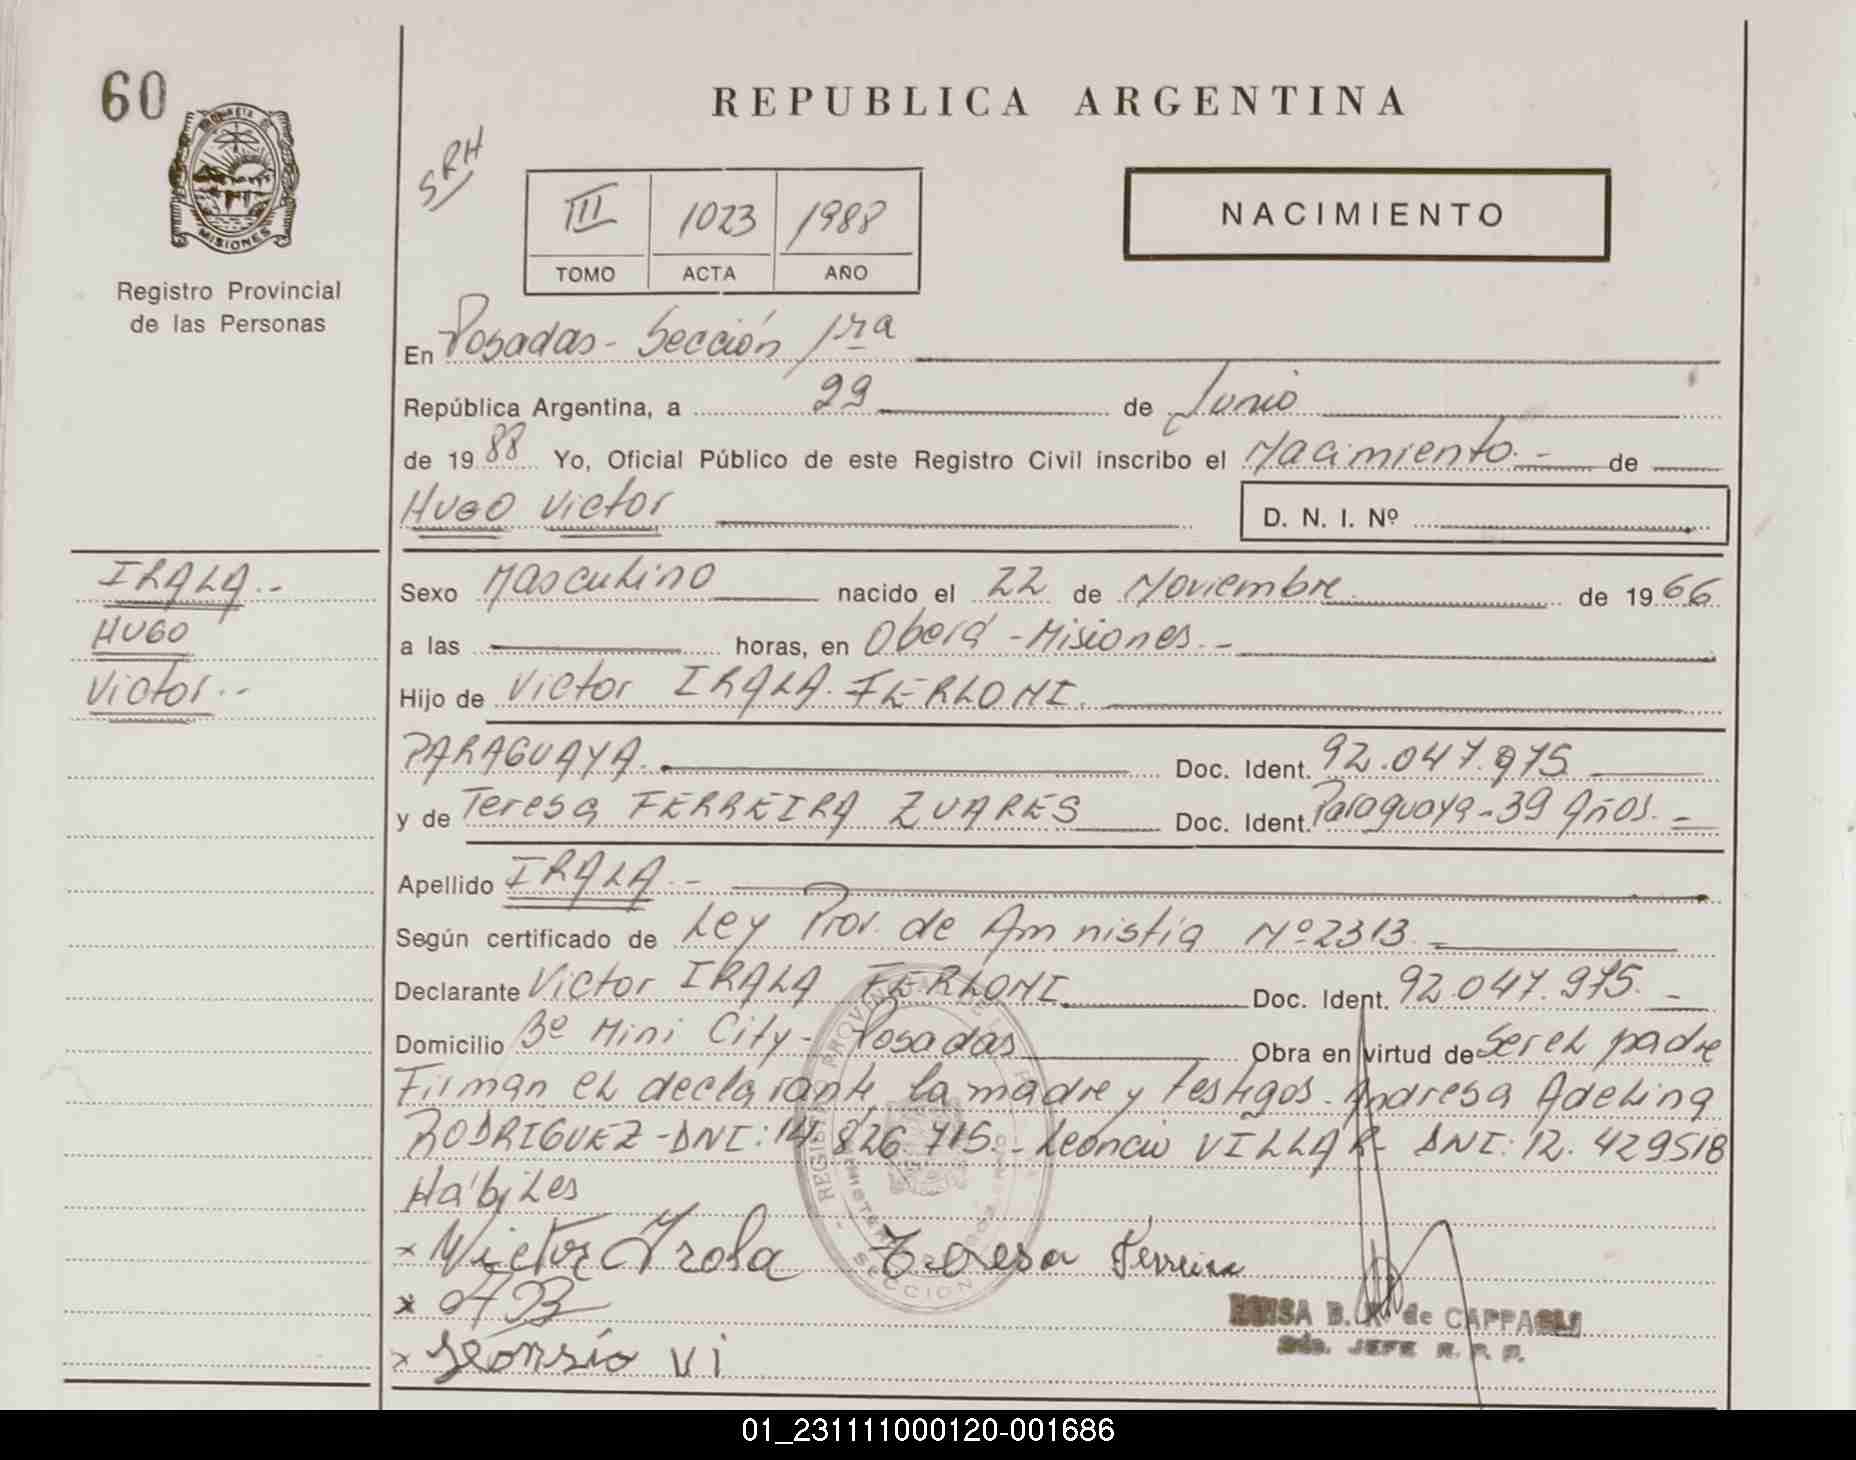 60
MISIONES
Registro Provincial
de las Personas
REPUBLICA ARGENTINA
SRH
III 1023 1988
TOMO ACTA AÑO
NACIMIENTO
En Posadas - Sección 1ra
República Argentina, a 29 de Junio
de 1988 Yo, Oficial Público de este Registro Civil inscribo el Nacimiento.- de
HUGO Victor
D. N. I. Nº
IRALA.-
HUGO
Victor.-
Sexo Masculino nacido el 22 de Noviembre de 1966
a las horas, en Oberá - Misiones.-
Hijo de Victor IRALA FERLONI.
PARAGUAYA. Doc. Ident. 92.047.975
y de Teresa FERREIRA ZUARES Doc. Ident. Paraguaya - 39 Años.-
Apellido IRALA.-
Según certificado de Ley Prov. de Amnistía Nº 2313.-
Declarante Victor IRALA FERLONI Doc. Ident. 92.047.975.-
Domicilio Bº Mini City - Posadas Obra en virtud de Ser el padre
Firman el declarante la madre y Testigos. Andresa Adelina
RODRIGUEZ - DNI: 14.826.715.- Leoncio VILLAR - DNI: 12.429518
Hábiles
x Victor Irala Teresa Ferreira
x
x Leonsio vi
B. de CAPPAGLI
JEFE R. P. P.
SECCION
01_231111000120-001686